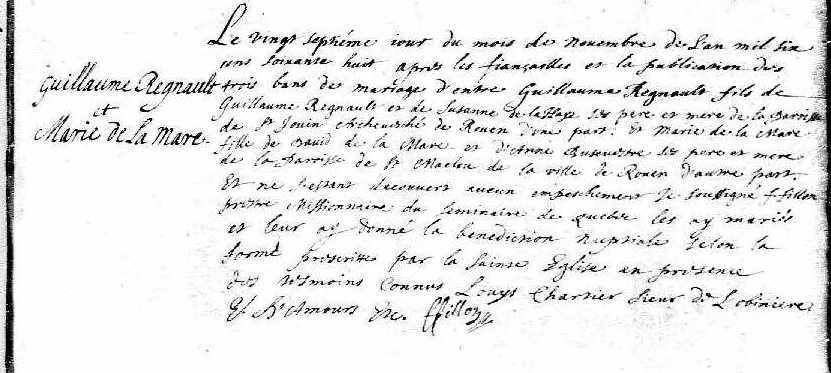 Guillaume Regnault
et
Marie de la Mare.
Le vingt septiéme iour du mois de novembre de l'an mil six
cens soixante huit apres les fiançailles et la publication des
trois bans de mariage d'entre Guillaume Regnault fils de
Guillaume Regnault et de Susanne de la Haye ses pere et mere de la Parroisse
de St Jouin Archevesché de Rouen d'une part: Et Marie de la Mare
fille de David de la Mare et d'Anne ses pere et mere
de la Parroisse de St Maclou de la ville de Rouen d'autre part.
Et ne s'estant decouvert aucun empeschement Je soussigné f fillon
prestre Missionnaire du seminaire de Quebec les ay mariés
et leur ay donné la benediction nuptiale selon la
forme prescritte par la Sainte Eglise en presence
des tesmoins connus Louys Chartier sieur de Lobiniere
St Amours &c. ffillon